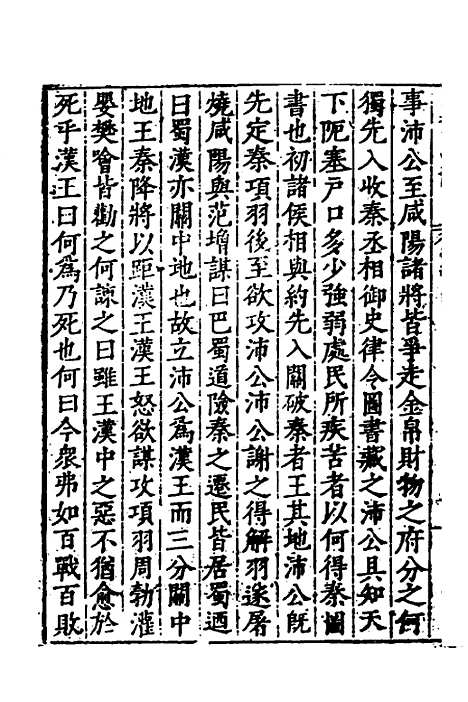 事沛公至咸陽諸將皆爭走金帛財物之府分之何
獨先入收秦丞相御史律令圖書藏之沛公具知天
下阨塞戶口多少強弱處民所疾苦者以何得秦圖
書也初諸侯相與約先入關破秦者王其地沛公旣
先定秦項羽後至欲攻沛公沛公謝之得解羽遂屠
燒咸陽與范增謀曰巴蜀道險秦之遷民皆居蜀迺
曰蜀漢亦關中地也故立沛公爲漢王而三分關中
地王秦降將以距漢王漢王怒欲謀攻項羽周勃灌
嬰樊噲皆勸之何諫之曰雖王漢中之惡不猶愈於
死乎漢王曰何爲乃死也何曰今衆弗如百戰百敗